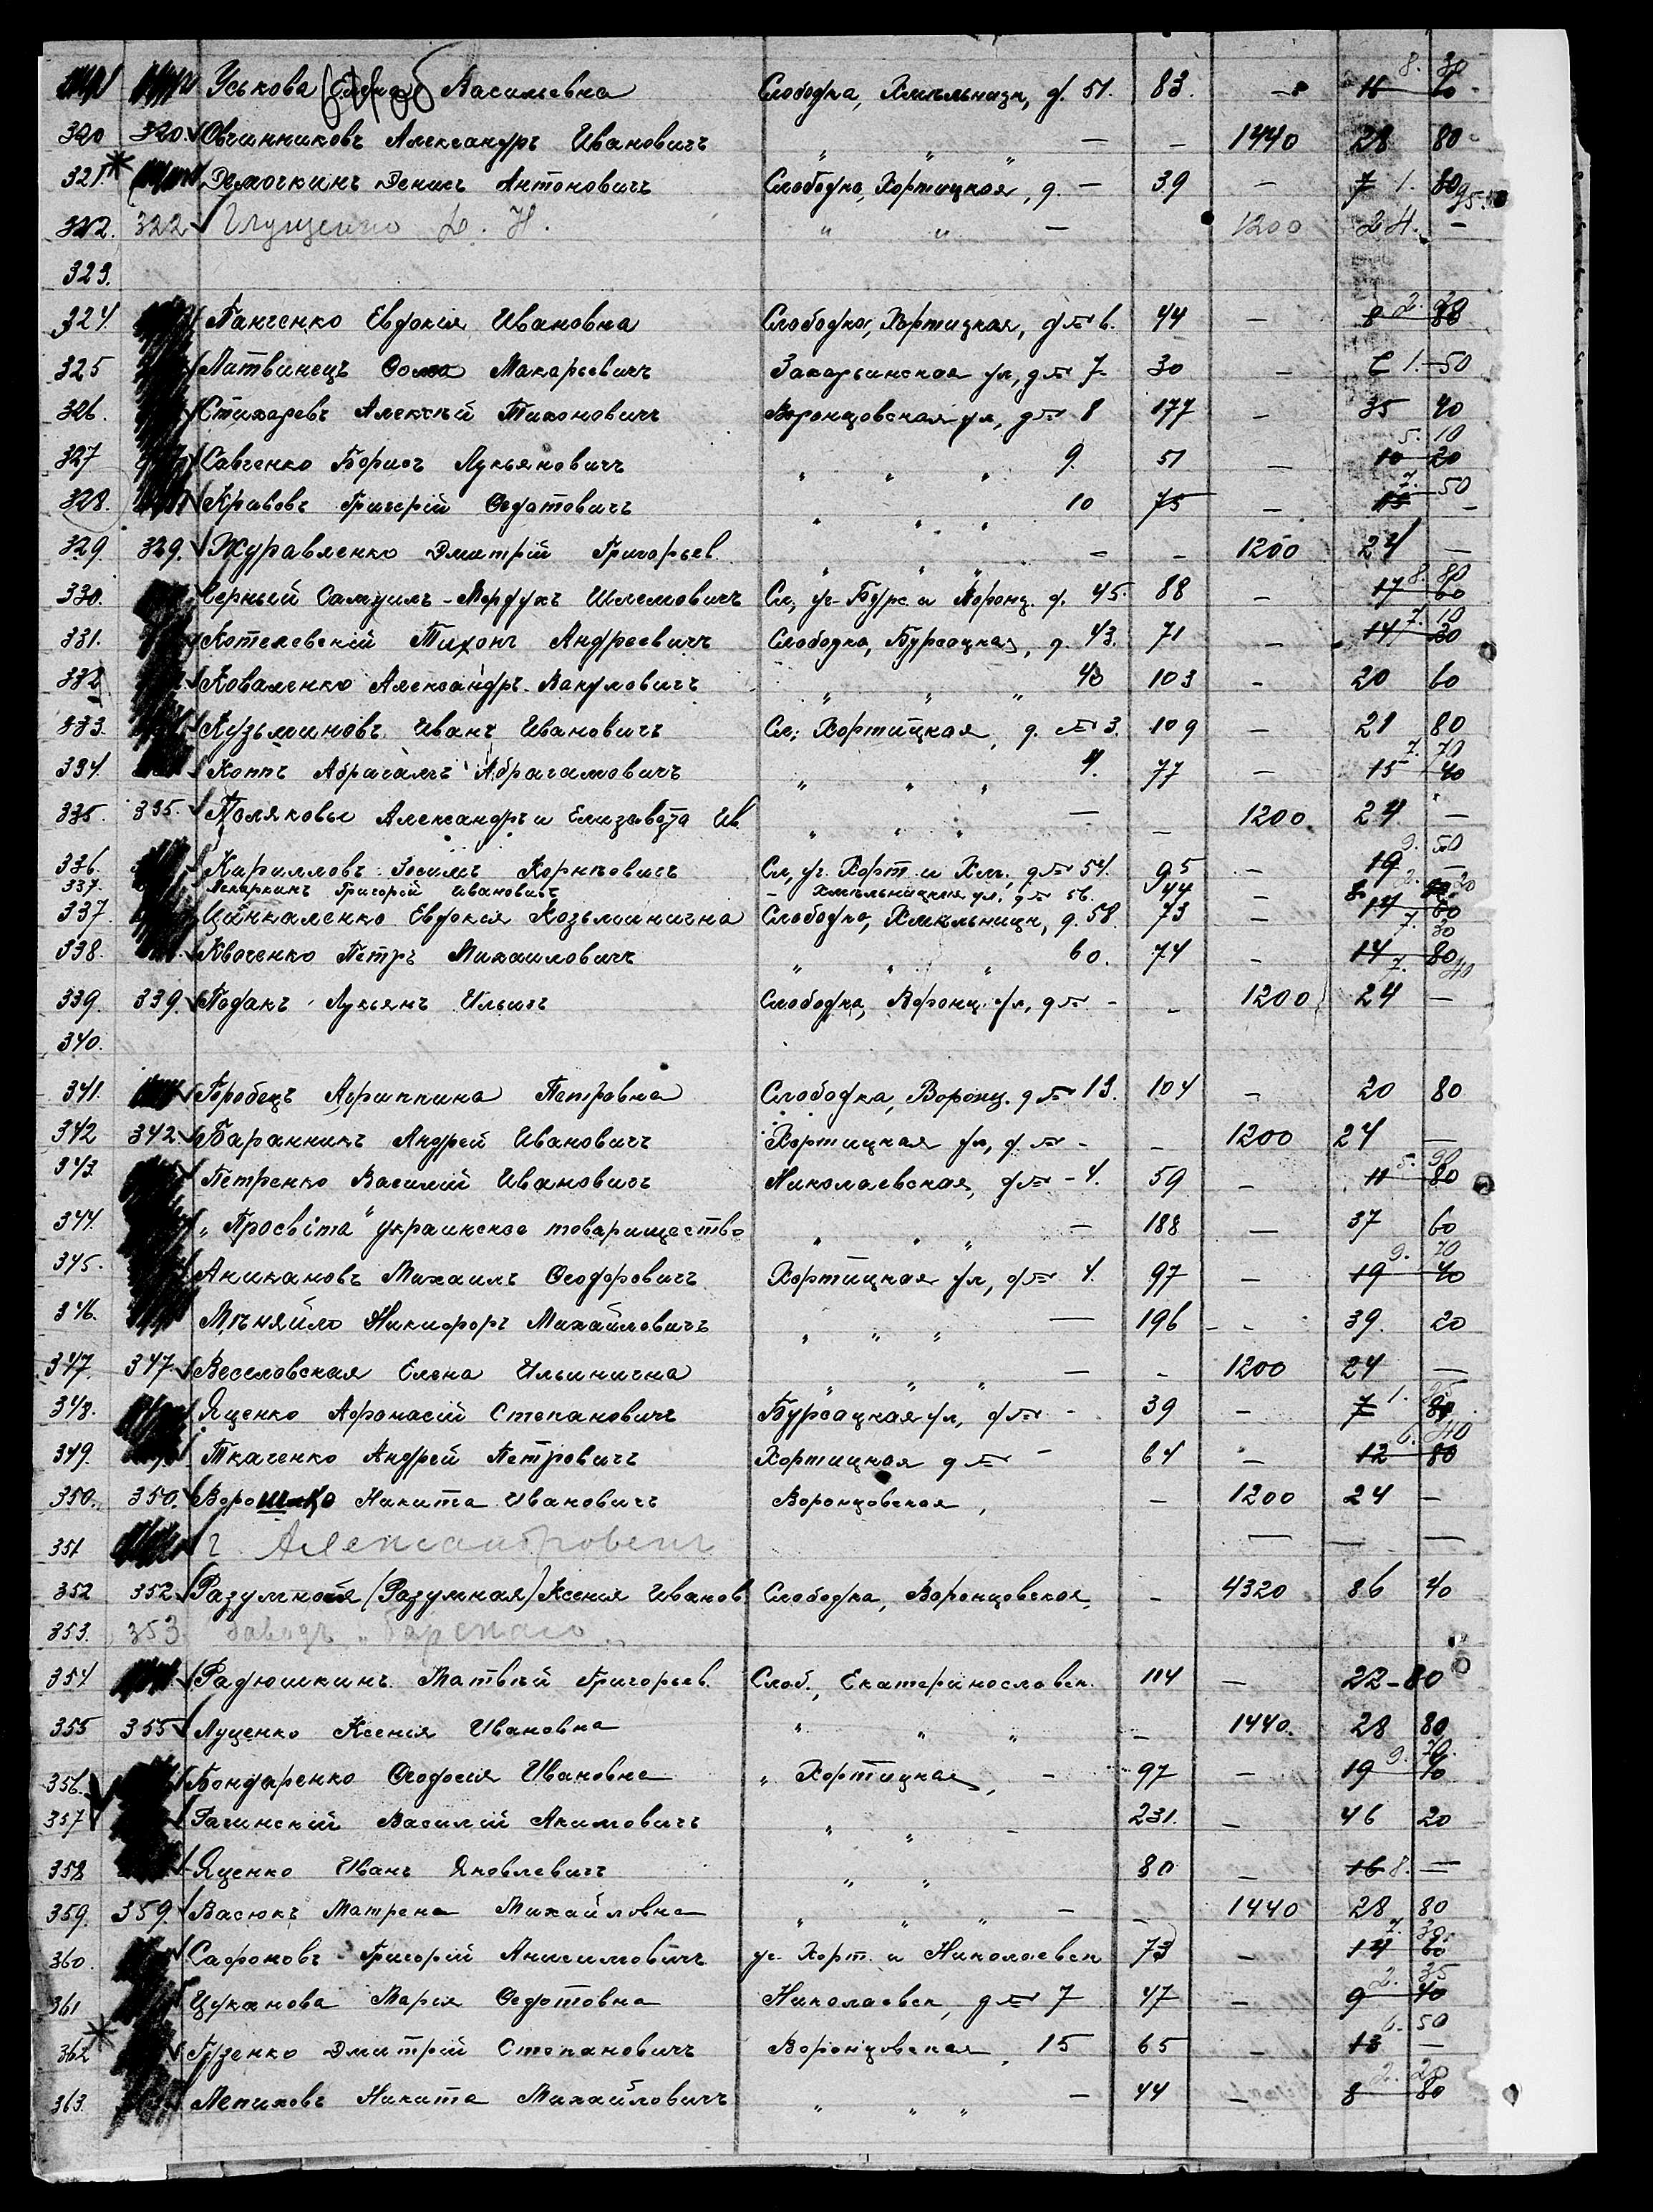 Уськова (Елена) Васильевна Слободка, Хмѣльницк, д. 51. 83. - 16 60 8. 30
320 320. Овчинниковъ Александръ Ивановичъ " " " — - 1440 28 80
321. Демочкинъ Денисъ Антоновичъ Слободка, Хортицкая, д. — 39 - 7 80 1. 95
322. 322 Глущенко Д. Н. " " — 1200 24. -
323.
324. Панченко Евдокія Ивановна Слободка, Хортицкая, д № 6. 44 - 8 80 2. 20
325 Литвинецъ Фома Макарьевичъ Захарьинская ул, д № 7 30 - 6 1. 50
326. Стихаревъ Алексѣй Тихоновичъ Воронцовская ул, д № 8 177 - 35 40
327 Савченко Борисъ Лукьяновичъ " " " 9. 51 - 10 20 5. 10
328. Кривовъ Григорій Федотовичъ " " " 10 75 - 15 - 7. 50
329. 329. Журавленко Дмитрій Григорьев. " " " - - 1200 24 -
330. Черный Самуилъ-Мордухъ Шлемовичъ Сл, уг. Бурс. и Воронц. д. 45. 88 - 17 60 8. 80
331. Котелевскій Тихонъ Андреевичъ Слободка, Бурсацкая, д. 43. 71 - 14 20 7. 10
332 Коваленко Александръ Вакуловичъ " " " 40 103 - 20 60
333. Кузьминовъ Иванъ Ивановичъ Сл; Хортицкая, д. № 3. 109 - 21 80
334. Коппъ Абрагамъ Абрагамовичъ " " " 4. 77 - 15 40 7. 70
335. 335. Поляковы Александръ и Елизавета Ив. " " " — - 1200. 24 -
336. Кирилловъ Зосимъ Корнѣевичъ Сл, уг. Хорт. и Хм., д № 54. 95 - 19 - 9. 50
337. Лекаркинъ Григорій Ивановичъ - Хмѣльницкая ул, д № 56. 44 8 80 2. 20
337. Цинкаленко Евдокія Козьминична Слободка, Хмѣльницк, д. 58. 73 - 14 60 7. 30
338. Квоченко Петръ Михаиловичъ " " " 60. 74 - 14 80 7. 40
339. 339. Подакъ Лукьянъ Ильичъ Слободка, Воронц. ул, д № - - 1200 24 -
340.
341. Горобецъ Агриппина Петровна Слободка, Воронц. д № 13. 104 - 20 80
342 342. Баранникъ Андрей Ивановичъ Хортицкая ул, д. № - - 1200 24 —
343 Петренко Василій Ивановичъ Николаевская, д № - 4. 59 - 11 80 5. 90
344. "Просвіта" украинское товарищество " " " — 188 - 37 60
345. Аникановъ Михаилъ Феодоровичъ Хортицкая ул, д № 4. 97 - 19 40 9. 70
346. Мѣняйло Никифоръ Михайловичъ " " " — 196 - - 39. 20
347. 347. Веселовская Елена Ильинична " " " — - 1200 24 -
348. Яценко Афанасій Степановичъ Бурсацкая ул, д № - 39 - 7 80 1. 95
349. Ткаченко Андрей Петровичъ Хортицкая д № - 64 - 12 80 6. 40
350. 350. Ворошко Никита Ивановичъ Воронцовская, - 1200 24 -
351 г. Александровскъ — — —
352 352. Разумная (Разумная) Ксенія Иванов. Слободка, Воронцовская, - 4320 86 40
353. 353. Заводъ
354 Радюшкинъ Матвѣй Григорьев. Слоб., Екатеринославск. 114 - 22-80
355 355 Луценко Ксенія Ивановна " " " - 1440. 28 80
356. Бондаренко Феодосія Ивановна " Хортицкая, - 97 - 19 40 9. 70.
357 Гачинскій Василій Акимовичъ " " - 231. - 46 20
358 Яценко Иванъ Яковлевичъ " " 80 - 16 8. -
359. 359. Васюкъ Матрена Михайловна " " " - - 1440 28 80
360. Сафоновъ Григорій Анисимовичъ уг. Хорт. и Николаевск 73 - 14 60 7. 30.
361 Цуканова Марія Федотовна Николаевск, д № 7 47 - 9 40 2. 35
362 Гузенко Дмитрій Степановичъ Воронцовская, 15 65 - 13 - 6. 50
363. Лепиховъ Никита Михайловичъ " " " - 44 - 8 80 2. 20